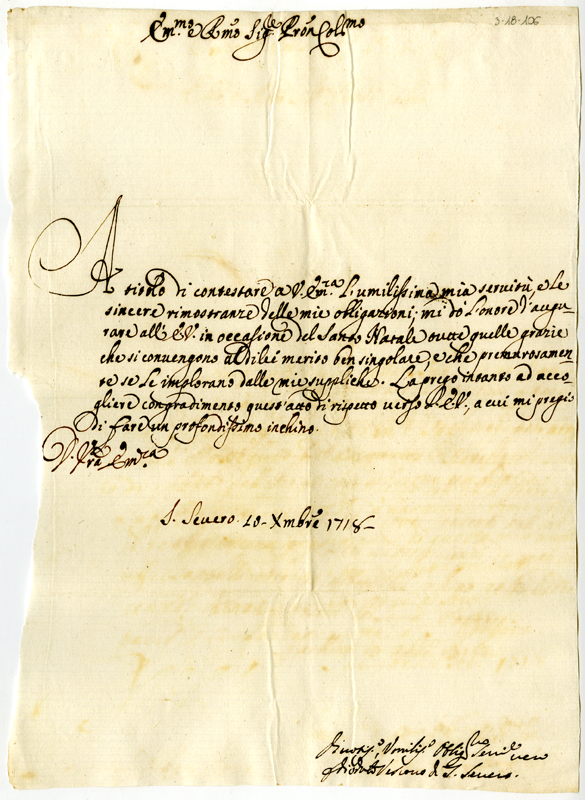 3-18-106
Em.mo e R.mo Sig.re Pron Col.mo
A titolo di contestare a V. Em.ra L'umilissima mia servitù, e le
sincere rimostranze delle mie obligationi; mi dò l'onore d'augu-
rare all'E.V. in occasione del Santo Natale tutte quelle grazie
che si convengono al di lei merito ben singolare, e che premurosamen-
te se Le implorano dalle mie suppliche. La prego intanto ad acco-
gliere con gradimento quest'atto di rispetto verso L'E.V., a cui mi pregio
di fare un profondissimo inchino.
D. V.ra Em.za
S. Severo 18 Xmbre 1718
Divotis.o Umilis.o Oblig.mo Servid.e vero
Vescovo di S. Severo.